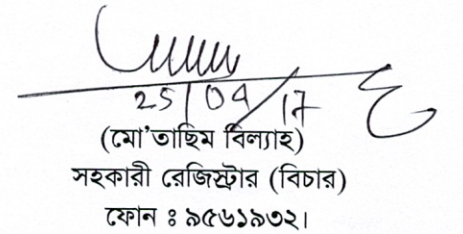 25/04/17
(মো'তাছিম বিল্যাহ)
সহকারী রেজিস্ট্রার (বিচার)
ফোন ঃ ৯৫৬১৯৩২।